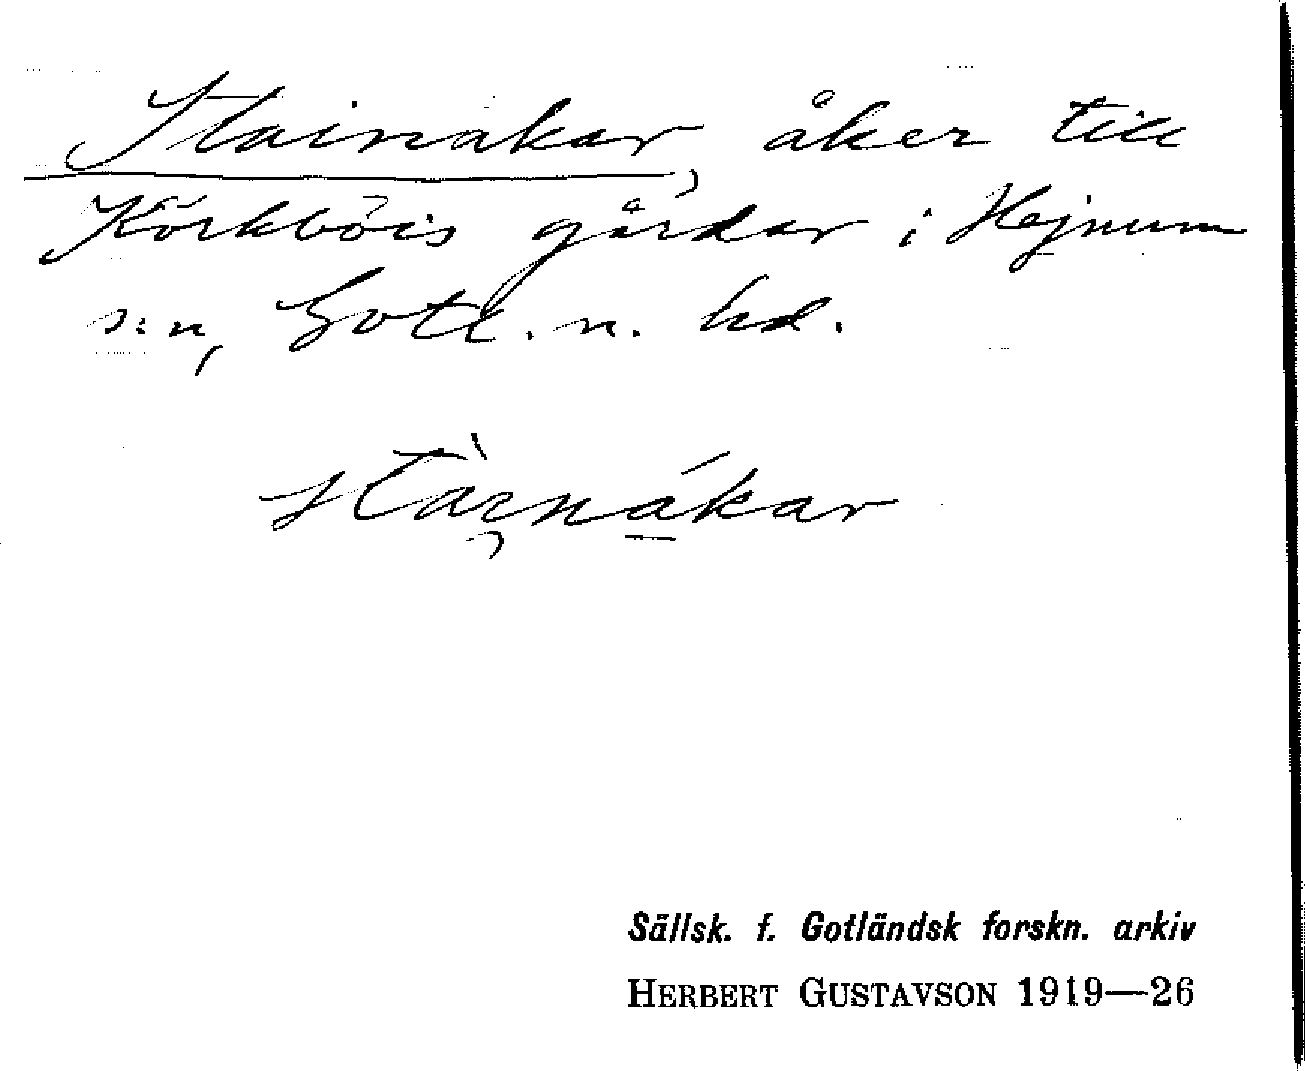 Stainakar, åker till
Körkböis gårdar i Hejnum
s:n, Gotl. n. hd.
stàɪ̯nákar
Sällsk. f. Gotländsk forskn. arkiv
HERBERT GUSTAVSON 1919—26